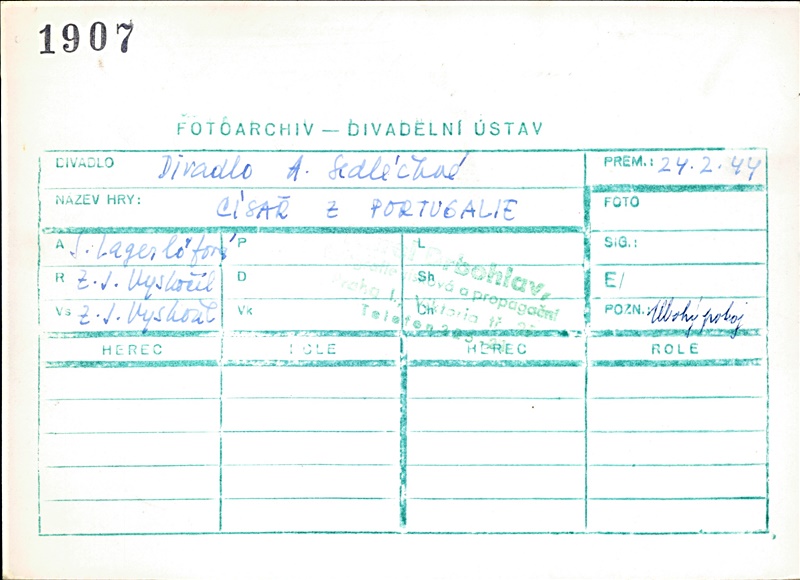 1907
FOTOARCHIV — DIVADELNÍ ÚSTAV
DIVADLO Divadlo A. Sedláčkové PREM.: 24.2.44
NÁZEV HRY: CÍSAŘ Z PORTUGALIE FOTO
A S. Lagerlöfová P L SIG.:
R Z. J. Vyskočil D Sh E/
Vs Z. J. Vyskočil Vk Ch POZN.: Ubohý pokoj
Drbohlav,
a propagační
Praha I., Viktoria tř.
Telefon
HEREC ROLE HEREC ROLE